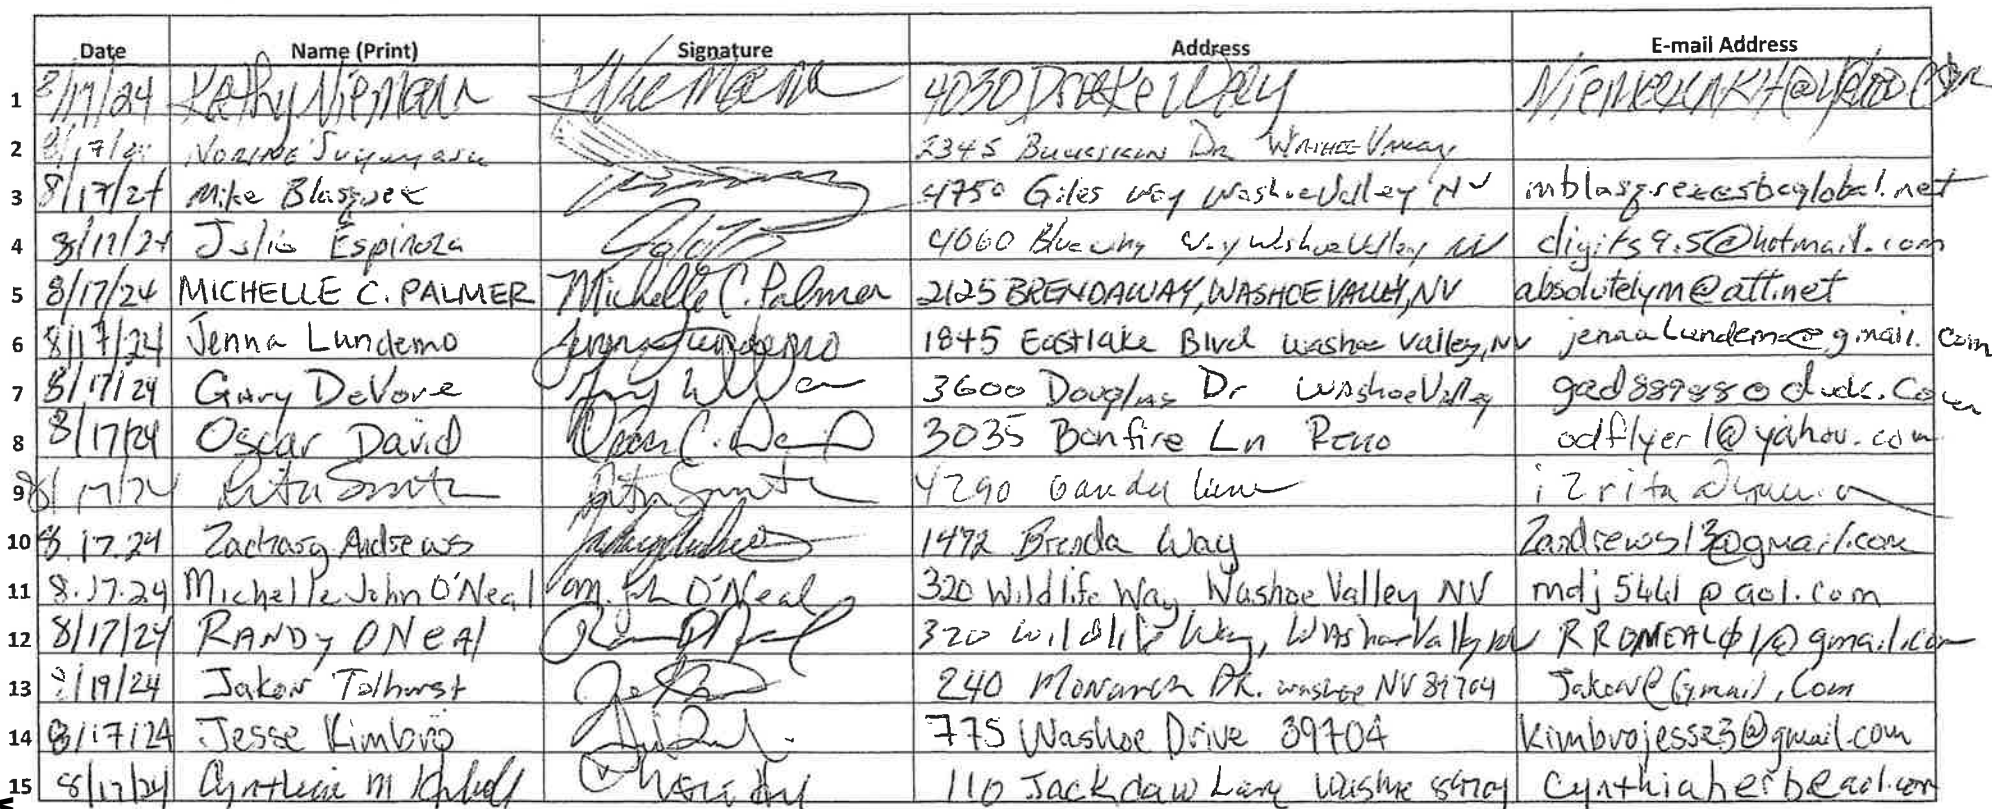 Date Name (Print) Signature Address E-mail Address
1 8/17/24 Kathy Niemann KNiemann 4030 Drake Way
2 8/17/24 NORINE 2345 Dr. WASHOE VALLEY
3 8/17/24 Mike 4750 Giles way Washoe Valley NV
4 8/17/24 Julio Espinoza 4060 Way Washoe Valley NV digits9.5@hotmail.com
5 8/17/24 MICHELLE C. PALMER Michelle C. Palmer 2125 BRENDA WAY, WASHOE VALLEY, NV absolutelym@att.net
6 8/17/24 Jenna Lundemo Jenna Lundemo 1845 Eastlake Blvd Washoe Valley, NV jennalundemo@gmail.com
7 8/17/24 Gary DeVore 3600 Douglas Dr Washoe Valley
8 8/17/24 Oscar David Oscar C. David 3035 Bonfire Ln Reno odflyer1@yahoo.com
9 8/17/24 Rita Smith Rita Smith 4290 lane
10 8.17.24 Zachary Andrews 1472 Brenda Way Zandrews13@gmail.com
11 8.17.24 Michelle John O'Neal O'Neal 320 Wildlife Way Washoe Valley NV mdj5441@aol.com
12 8/17/24 RANDY ONeAl 320 Wildlife Way, Washoe Valley NV RRONEAL01@gmail.com
13 /19/24 Jakon Tolhurst 240 Monarch DR. Washoe NV 89704 Jakon@Gmail.Com
14 8/17/24 Jesse Kimbro 775 Washoe Drive 89704 kimbrojesse3@gmail.com
15 8/17/24 Cynthia M 110 Jackdaw Lane Washoe 89704 cynthiaherb@aol.com